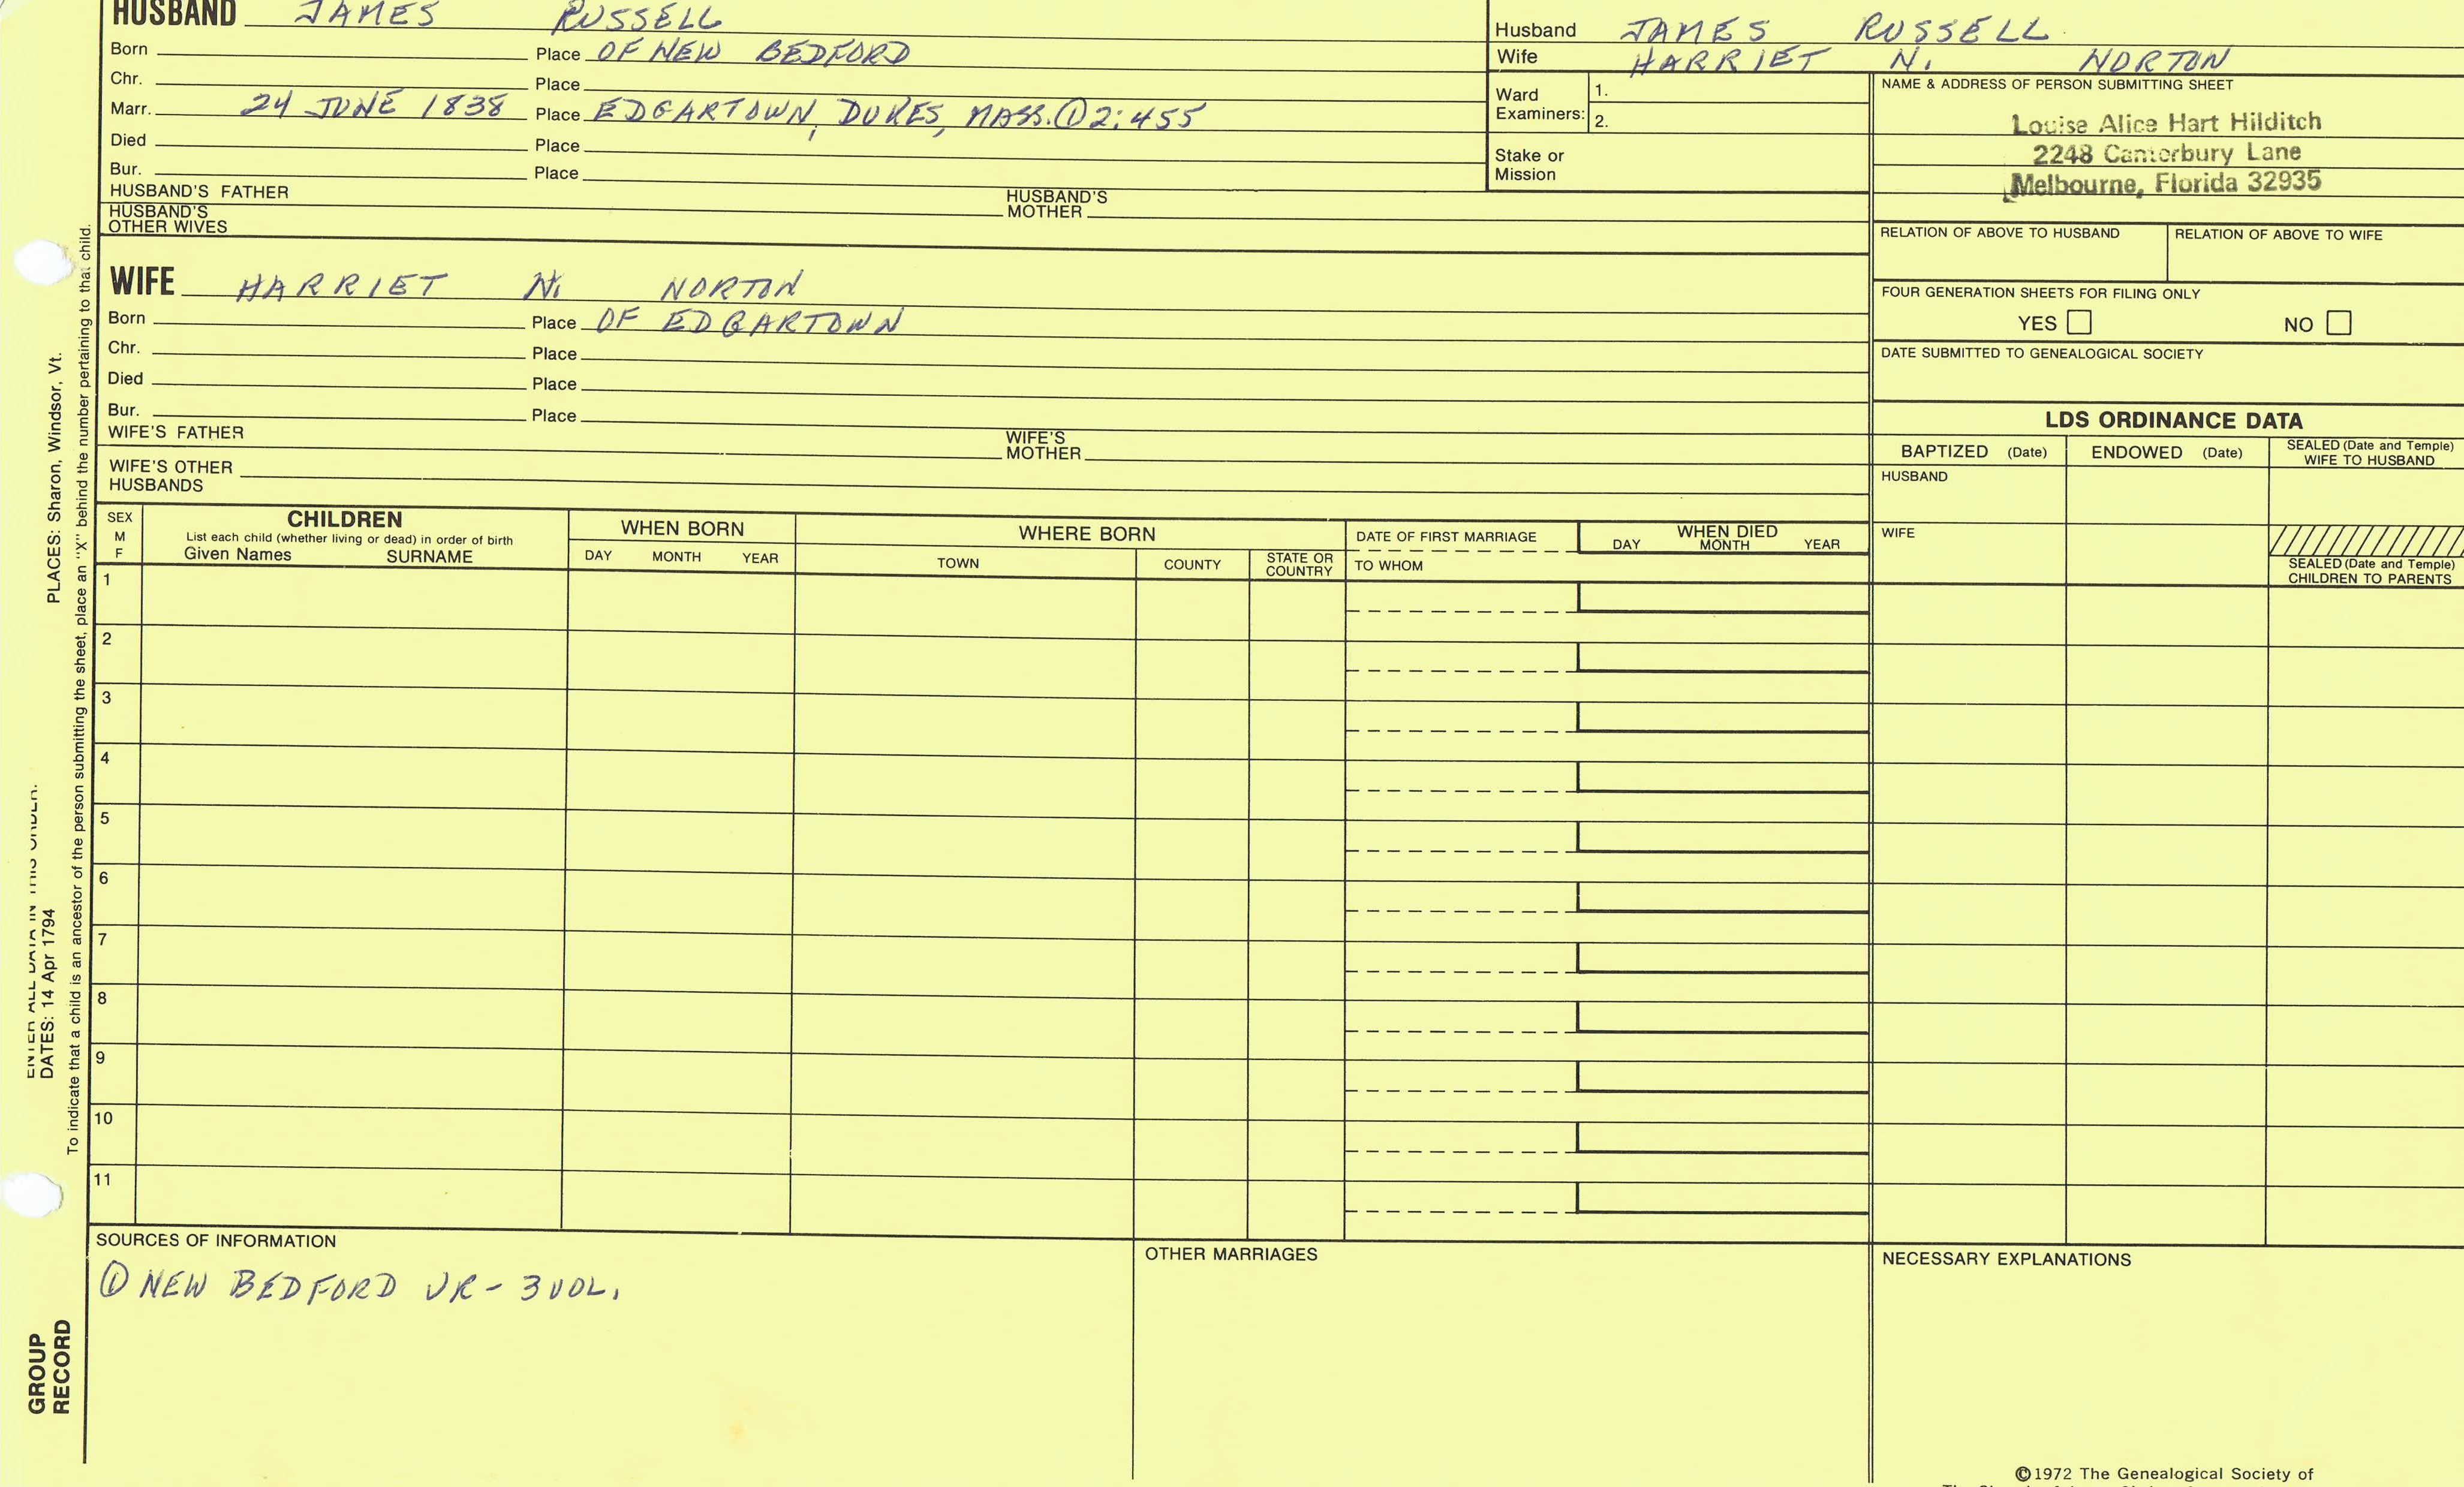 HUSBAND JAMES RUSSELL
Born Place OF NEW BEDFORD
Chr. Place
Marr. 24 JUNE 1838 Place EDGARTOWN, DUKES, MASS. ① 2:455
Died Place
Bur. Place
HUSBAND'S FATHER HUSBAND'S MOTHER
HUSBAND'S OTHER WIVES
Husband JAMES RUSSELL
Wife HARRIET N. NORTON
Ward Examiners: 1.
2.
Stake or Mission
NAME & ADDRESS OF PERSON SUBMITTING SHEET
Louise Alice Hart Hilditch
2248 Canterbury Lane
Melbourne, Florida 32935
RELATION OF ABOVE TO HUSBAND RELATION OF ABOVE TO WIFE
FOUR GENERATION SHEETS FOR FILING ONLY
YES NO
DATE SUBMITTED TO GENEALOGICAL SOCIETY
WIFE HARRIET N. NORTON
Born Place OF EDGARTOWN
Chr. Place
Died Place
Bur. Place
WIFE'S FATHER WIFE'S MOTHER
WIFE'S OTHER HUSBANDS
LDS ORDINANCE DATA
BAPTIZED (Date) ENDOWED (Date) SEALED (Date and Temple) WIFE TO HUSBAND
HUSBAND
WIFE
SEALED (Date and Temple) CHILDREN TO PARENTS
SEX M F
CHILDREN
List each child (whether living or dead) in order of birth
Given Names SURNAME
WHEN BORN
DAY MONTH YEAR
WHERE BORN
TOWN COUNTY STATE OR COUNTRY
DATE OF FIRST MARRIAGE
TO WHOM
WHEN DIED
DAY MONTH YEAR
1
2
3
4
5
6
7
8
9
10
11
SOURCES OF INFORMATION
① NEW BEDFORD VR - 3 VOL.
OTHER MARRIAGES
NECESSARY EXPLANATIONS
©1972 The Genealogical Society of
ENTER ALL DATA IN THIS ORDER:
DATES: 14 Apr 1794 PLACES: Sharon, Windsor, Vt.
To indicate that a child is an ancestor of the person submitting the sheet, place an "X" behind the number pertaining to that child.
GROUP
RECORD